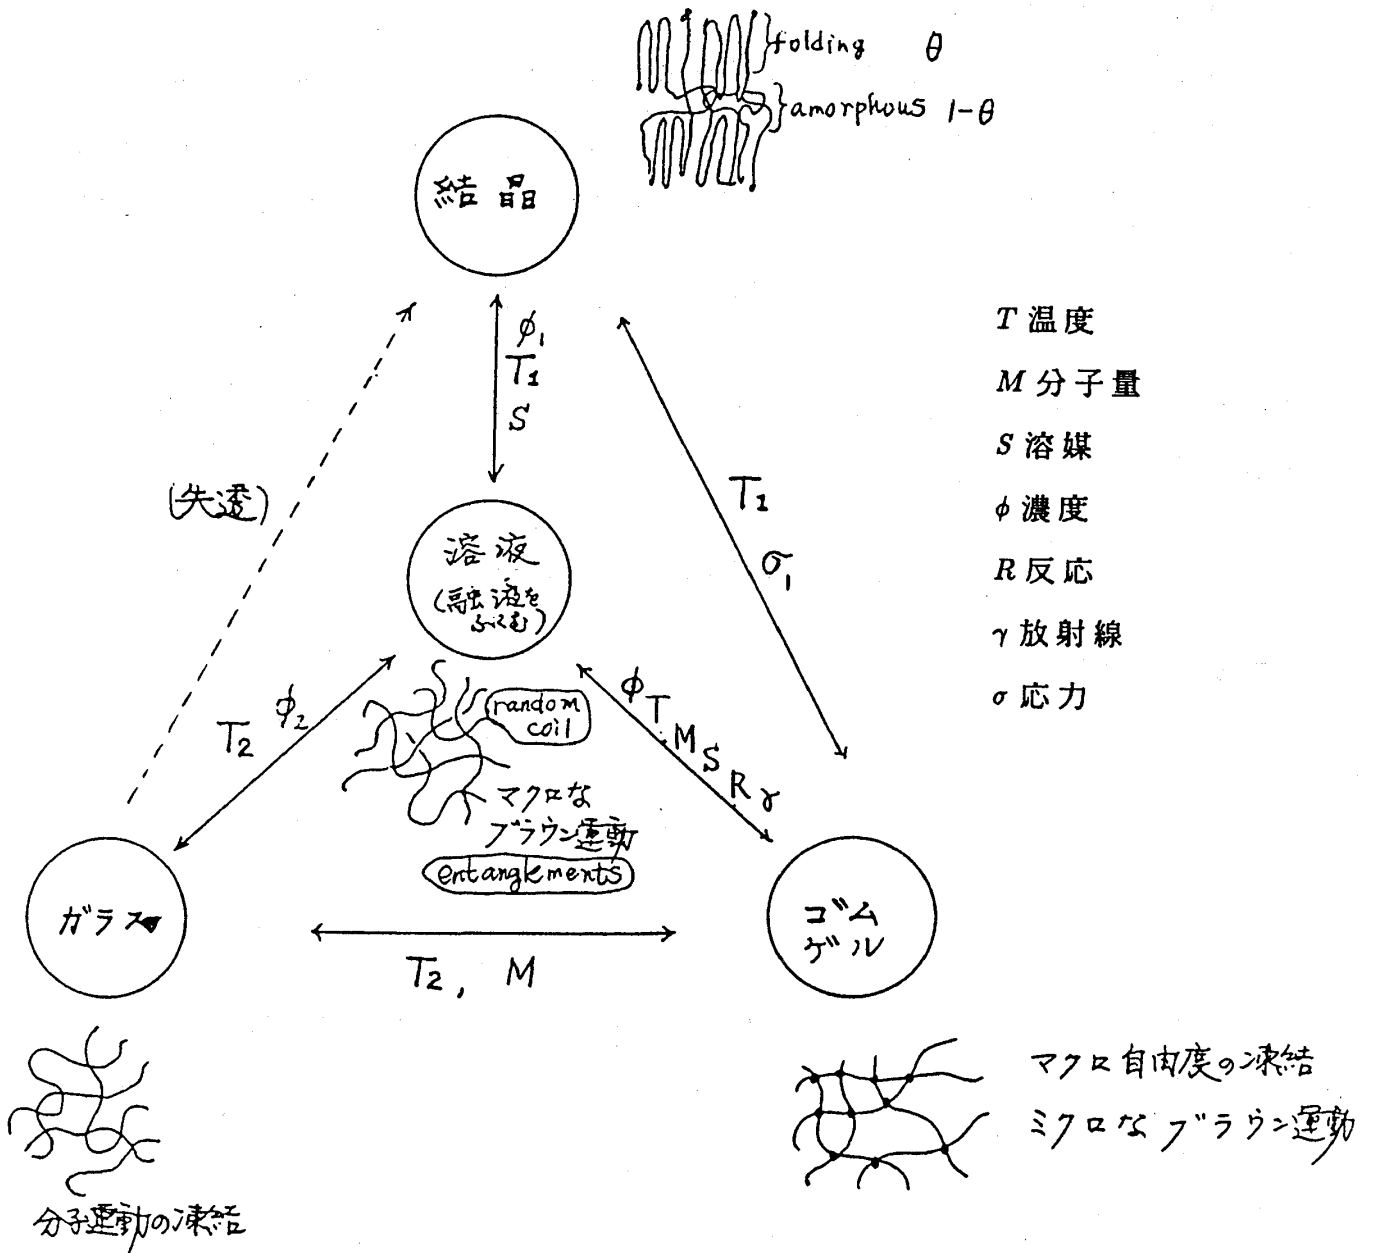 folding θ
amorphous 1-θ
結晶
φ₁
T₁
S
T 温度
M 分子量
S 溶媒
φ 濃度
R 反応
γ 放射線
σ 応力
(失透)
T₁
σ₁
溶液
(融液を
ふくむ)
φ₂
T₂
random
coil
φ T M S R γ
マクロな
ブラウン運動
entanglements
ガラス
ゴム
ゲル
T₂, M
マクロ自由度の凍結
ミクロなブラウン運動
分子運動の凍結